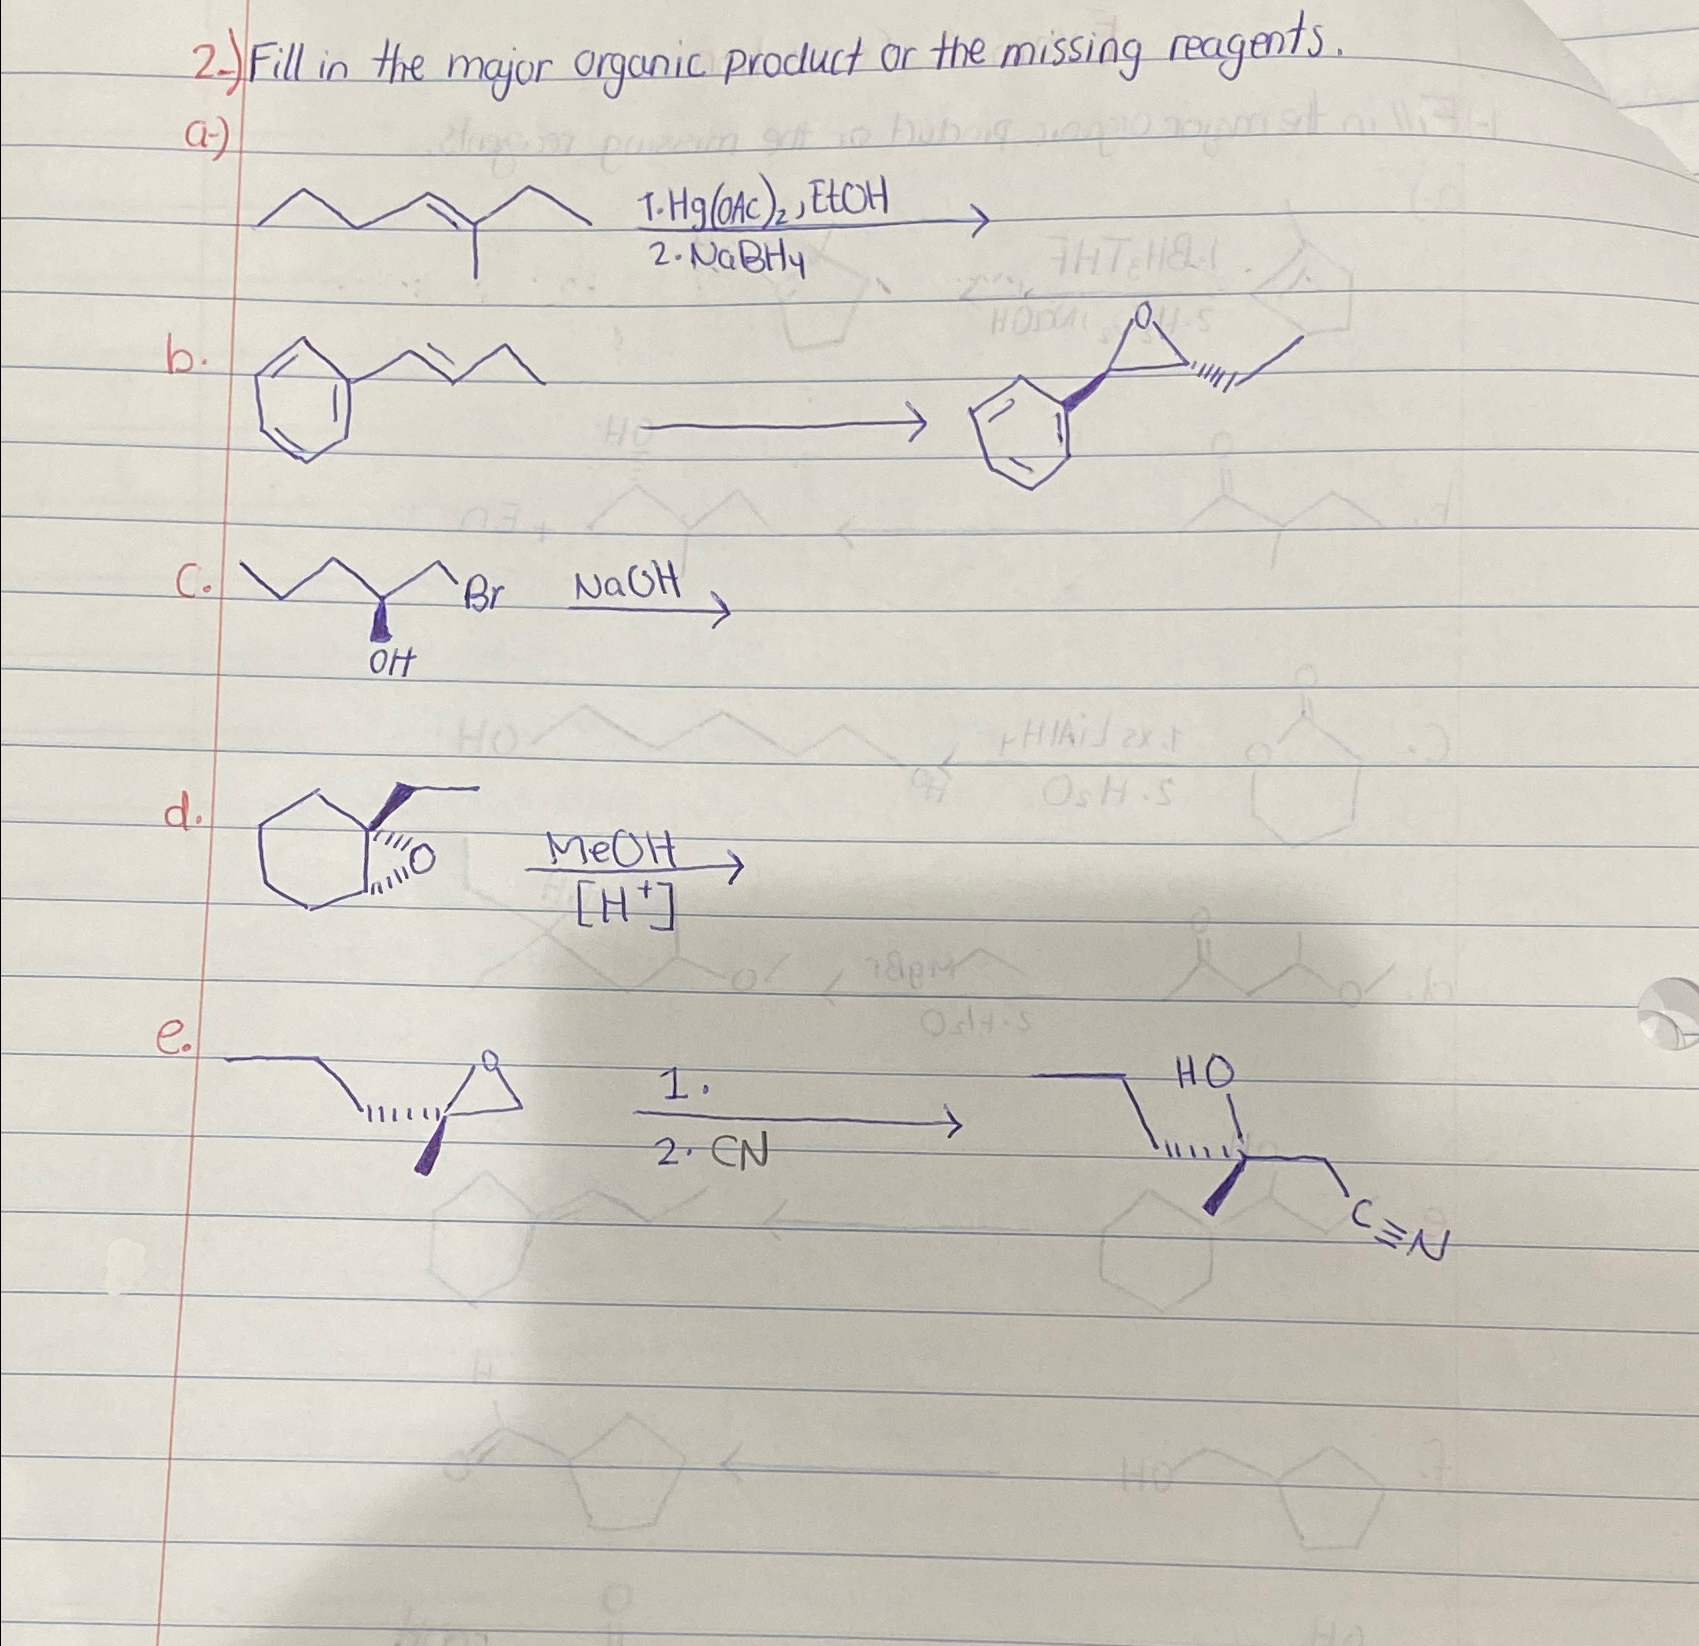 2-) Fill in the major organic product or the missing reagents.
a-)
1. Hg(OAc)₂, EtOH
2. NaBH₄
b.
O
c.
Br
OH
NaOH
d.
O
MeOH
[H⁺]
e.
O
1.
2. CN
HO
C≡N